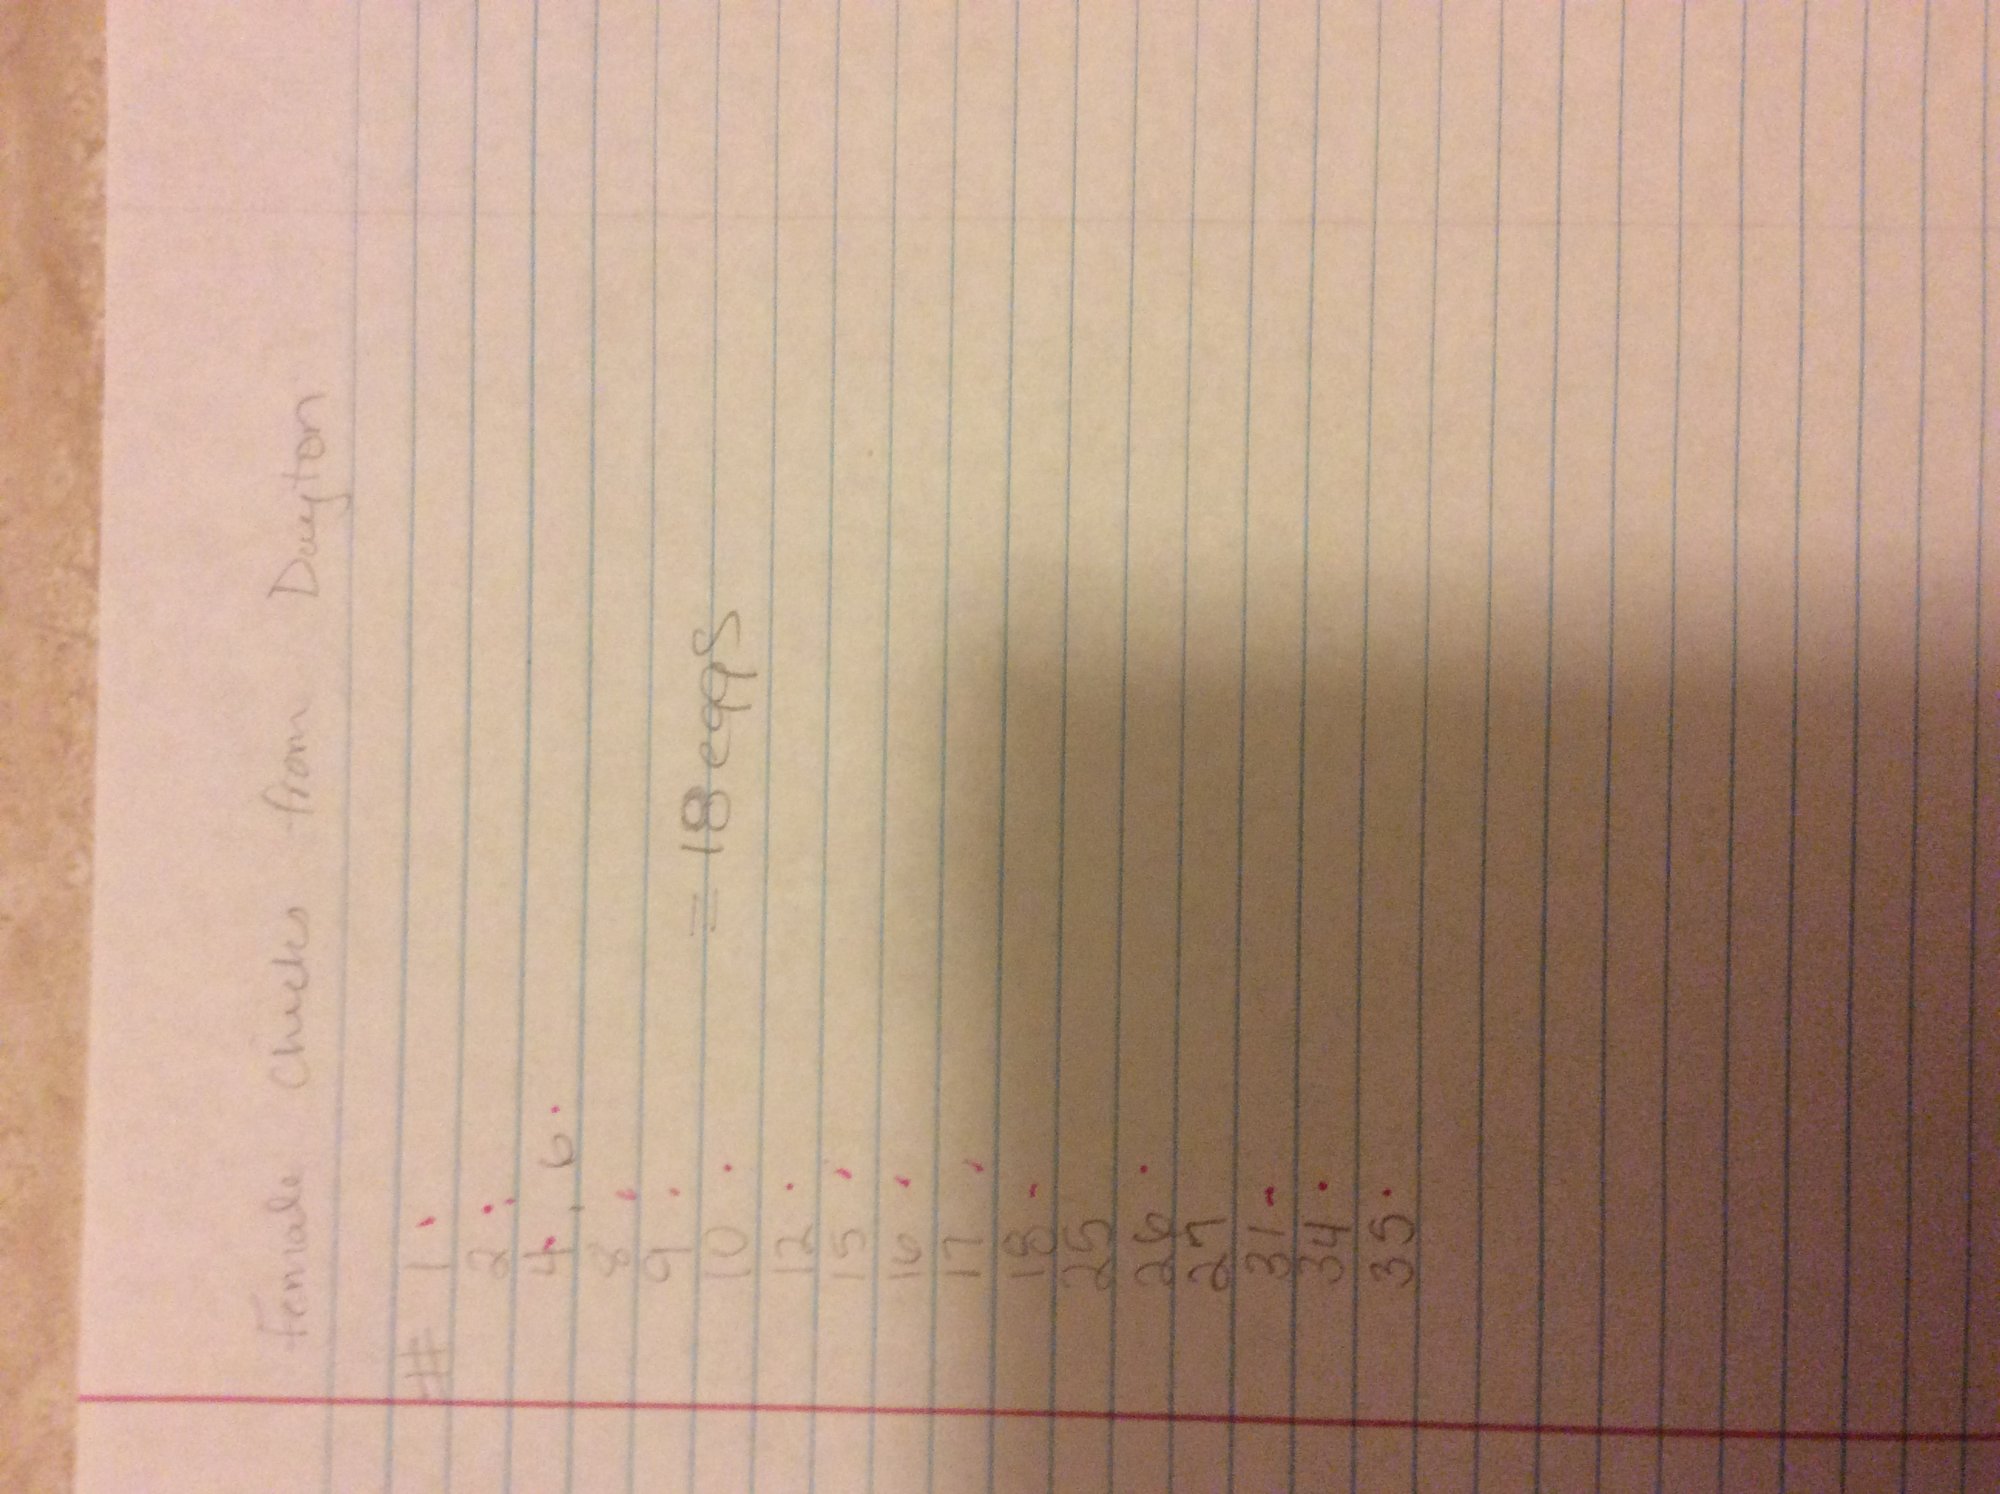 Female Chicks from Dayton
# 1
2
4, 6
8
9
10 = 18 eggs
12
15
16
17
18
25
26
27
31
34
35